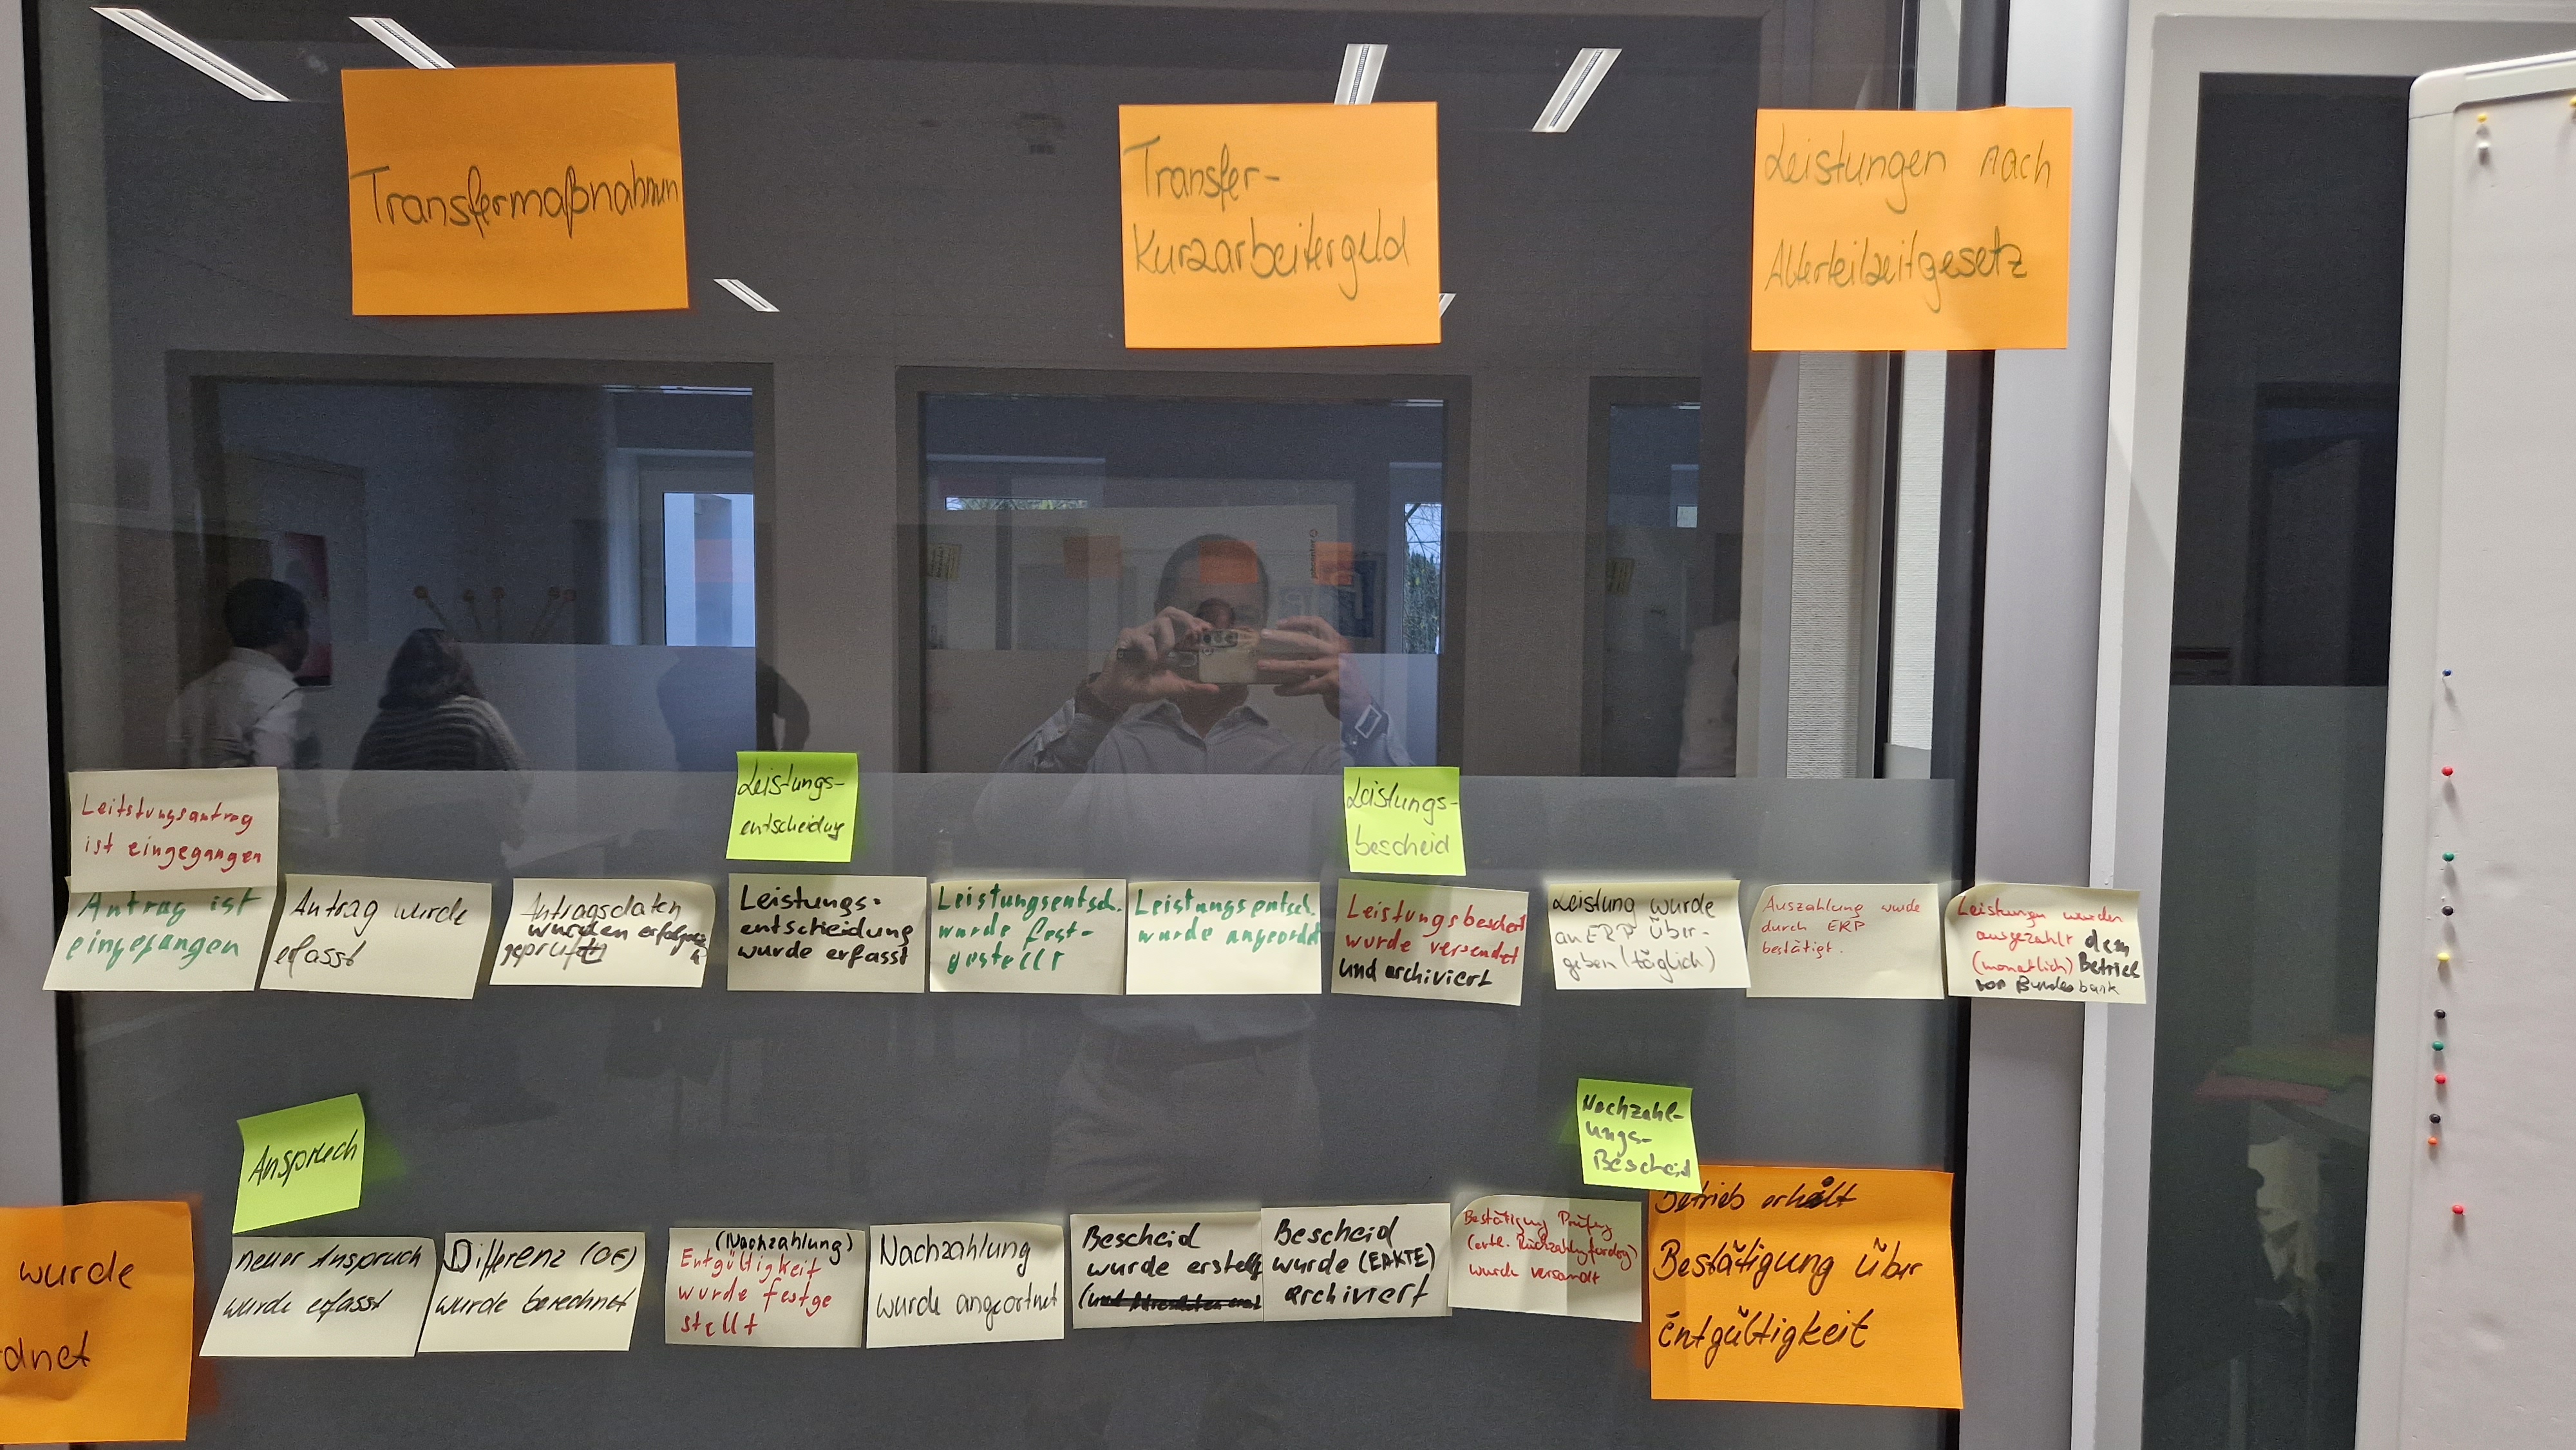 Transfermaßnahmen
Transfer-
Kurzarbeitergeld
Leistungen nach
Alterteilzeitgesetz
Leistungs-
entscheidung
Leistungs-
bescheid
Leitstungsantrag
ist eingegangen
Antrag ist
eingegangen
Antrag wurde
erfasst
Antragsdaten
wurden
geprüft
Leistungs-
entscheidung
wurde erfasst
Leistungsentsch.
wurde fest-
gestellt
Leistungsentsch.
wurde angeordnet
Leistungsbescheid
wurde versendet
und archiviert
Leistung wurde
an ERP über-
geben (täglich)
Auszahlung wurde
durch ERP
bestätigt.
Leistungen wurden
ausgezahlt dem
(monatlich) Betrieb
von Bundesbank
Anspruch
Nachzahl-
ungs-
Bescheid
wurde
dnet
neuer Anspruch
wurde erfasst
Differenz (OE)
wurde berechnet
(Nachzahlung)
Entgültigkeit
wurde festge
stellt
Nachzahlung
wurde angeortnet
Bescheid
wurde erstellt
Bescheid
wurde (EAKTE)
archiviert
Bestätigung Prüfung
wurde versandt
Betrieb erhält
Bestätigung über
Entgültigkeit